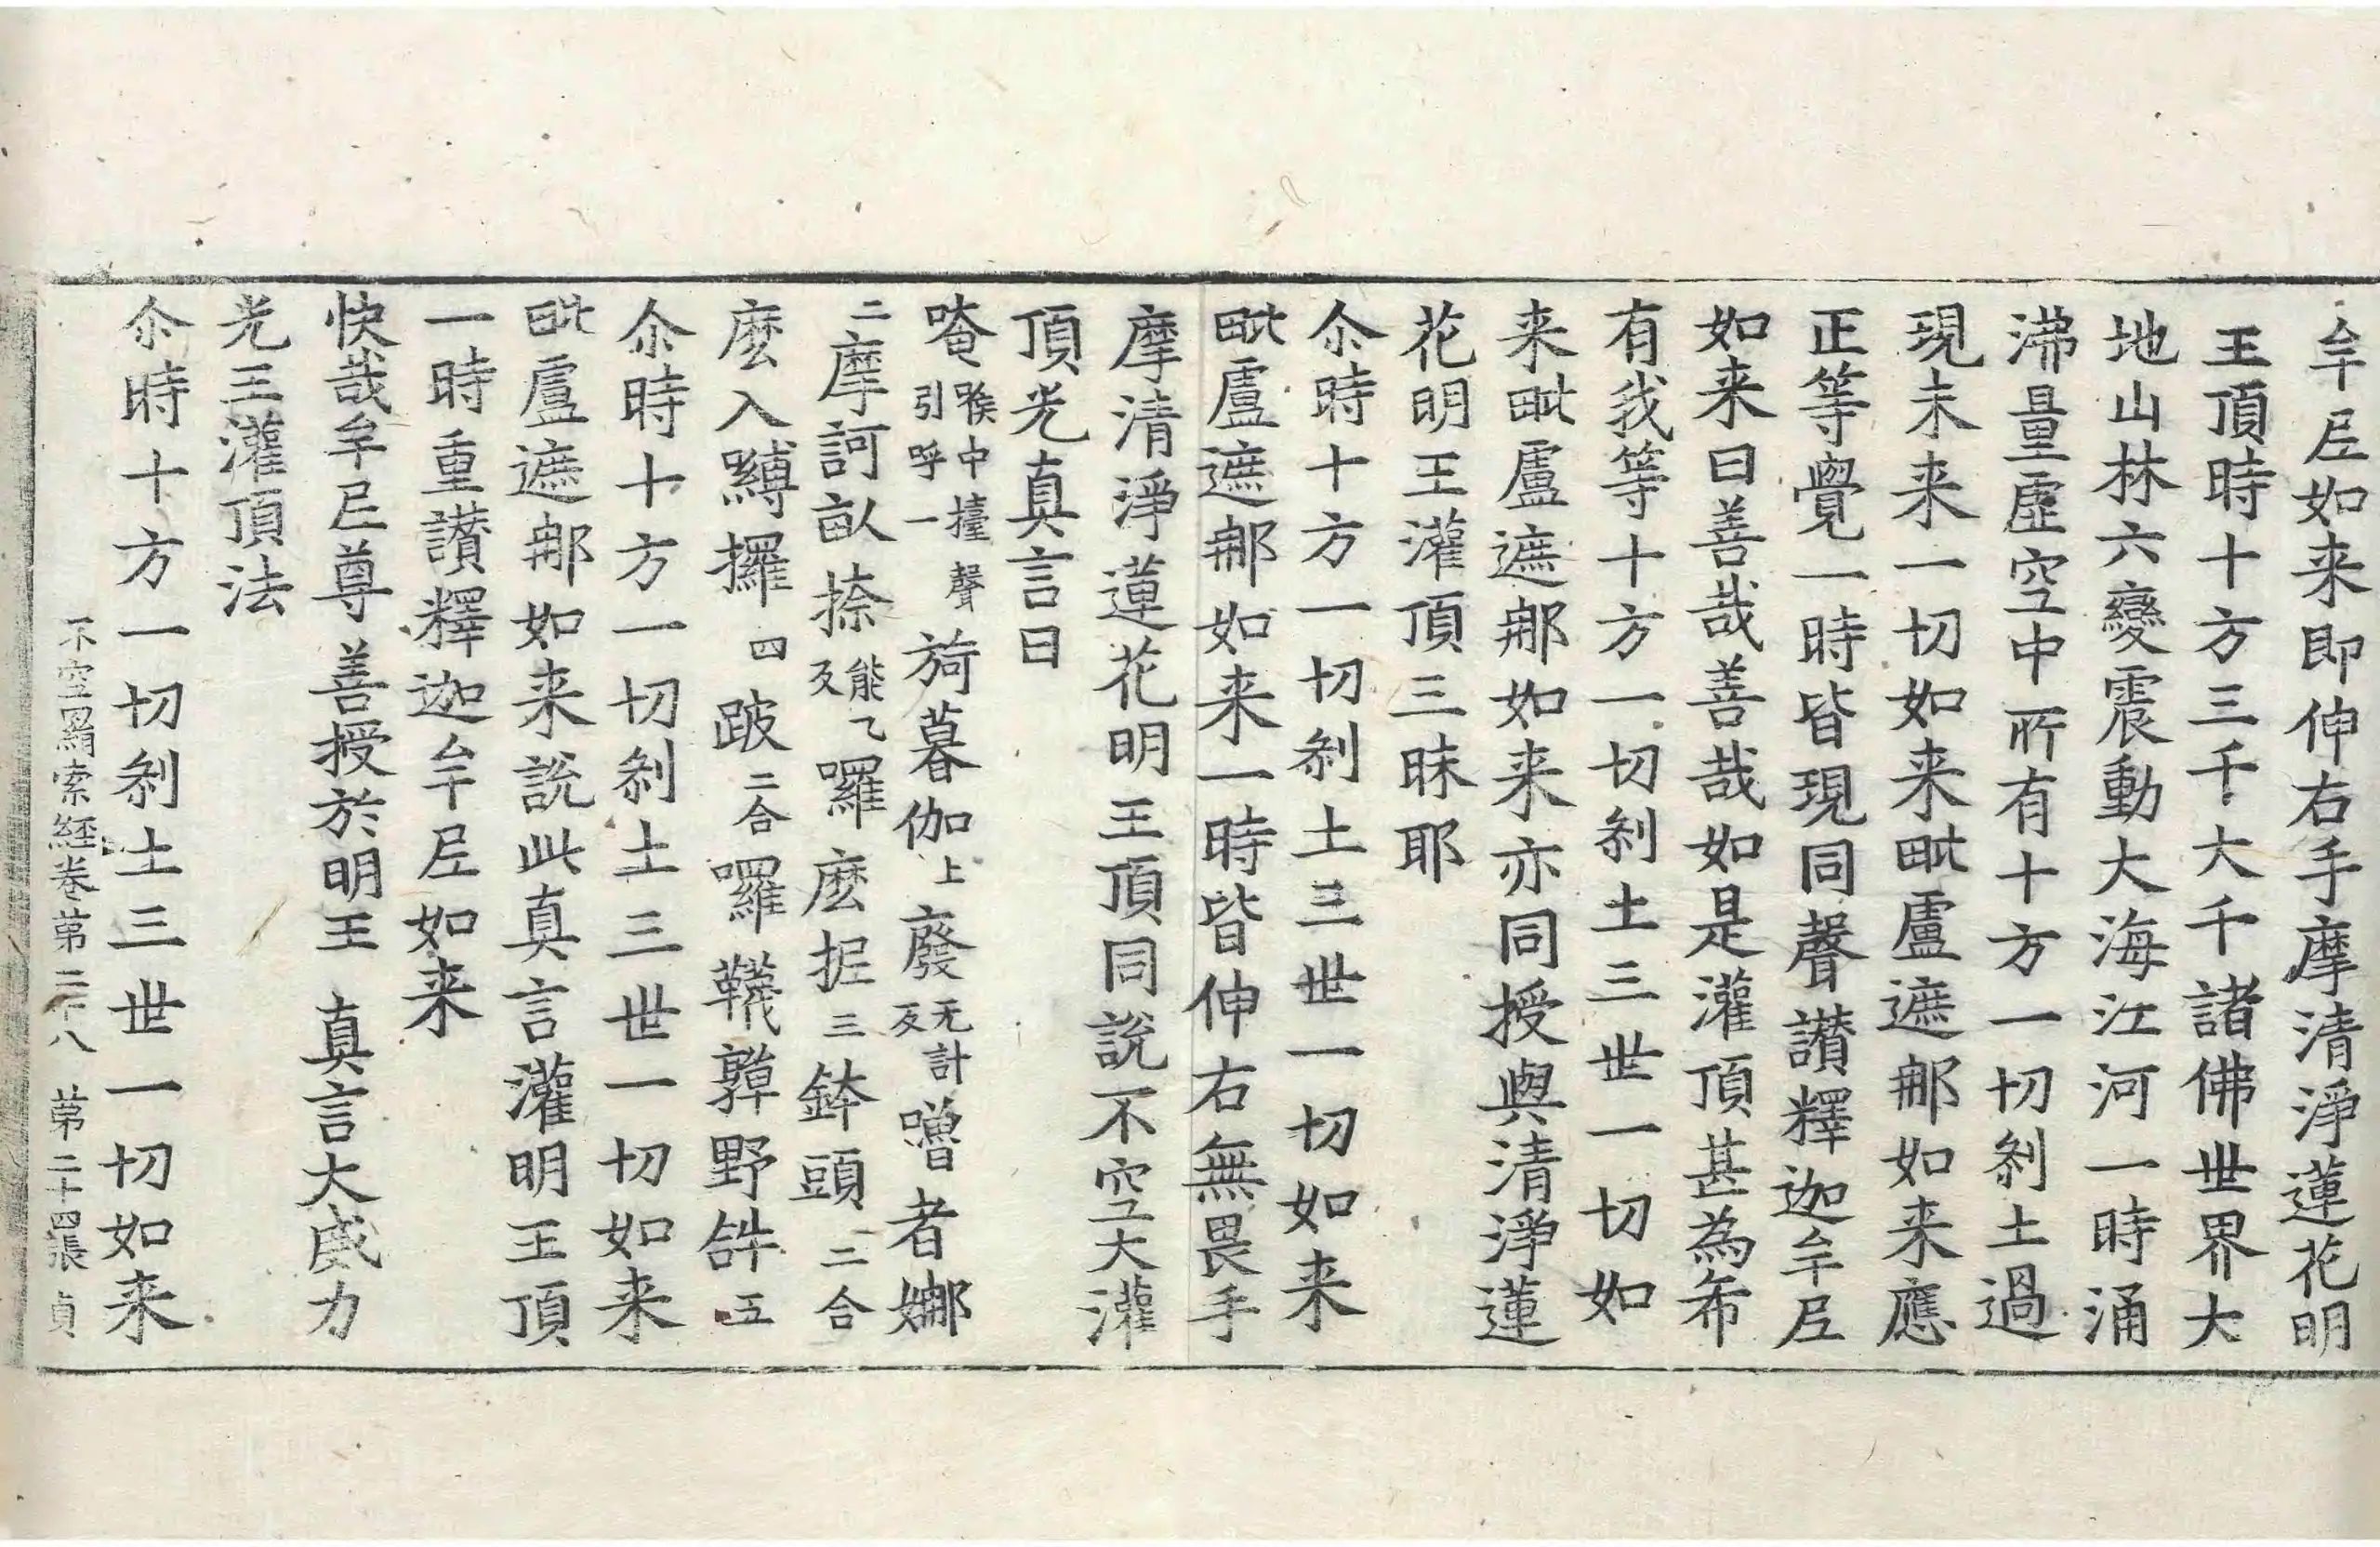 牟尼如来即伸右手摩清淨蓮花明
王頂時十方三千大千諸佛世界大
地山林六變震動大海江河一時涌
沸量虛空中所有十方一切刹土過
現未来一切如来毗盧遮那如来應
正等覺一時皆現同聲讃釋迦牟尼
如来曰善哉善哉如是灌頂甚為希
有我等十方一切刹土三世一切如
来毗盧遮那如来亦同授與清淨蓮
花明王灌頂三昧耶
尒時十方一切刹土三世一切如来
毗盧遮那如来一時皆伸右無畏手
摩清淨蓮花明王頂同說不空大灌
頂光真言曰
唵喉中擡聲引呼一旖暮伽上廢无計反嚕者娜
二摩訶畝捺能乙反囉麽抳三鉢頭二合
麽入嚩攞四跛二合囉韈嚲野𤙖五
尒時十方一切刹土三世一切如来
毗盧遮那如来說此真言灌明王頂
一時重讃釋迦牟尼如来
快哉牟尼尊 善授於明王 真言大威力
光王灌頂法
尒時十方一切刹土三世一切如来
不空羂索經卷第二十八 第二十四張 貞